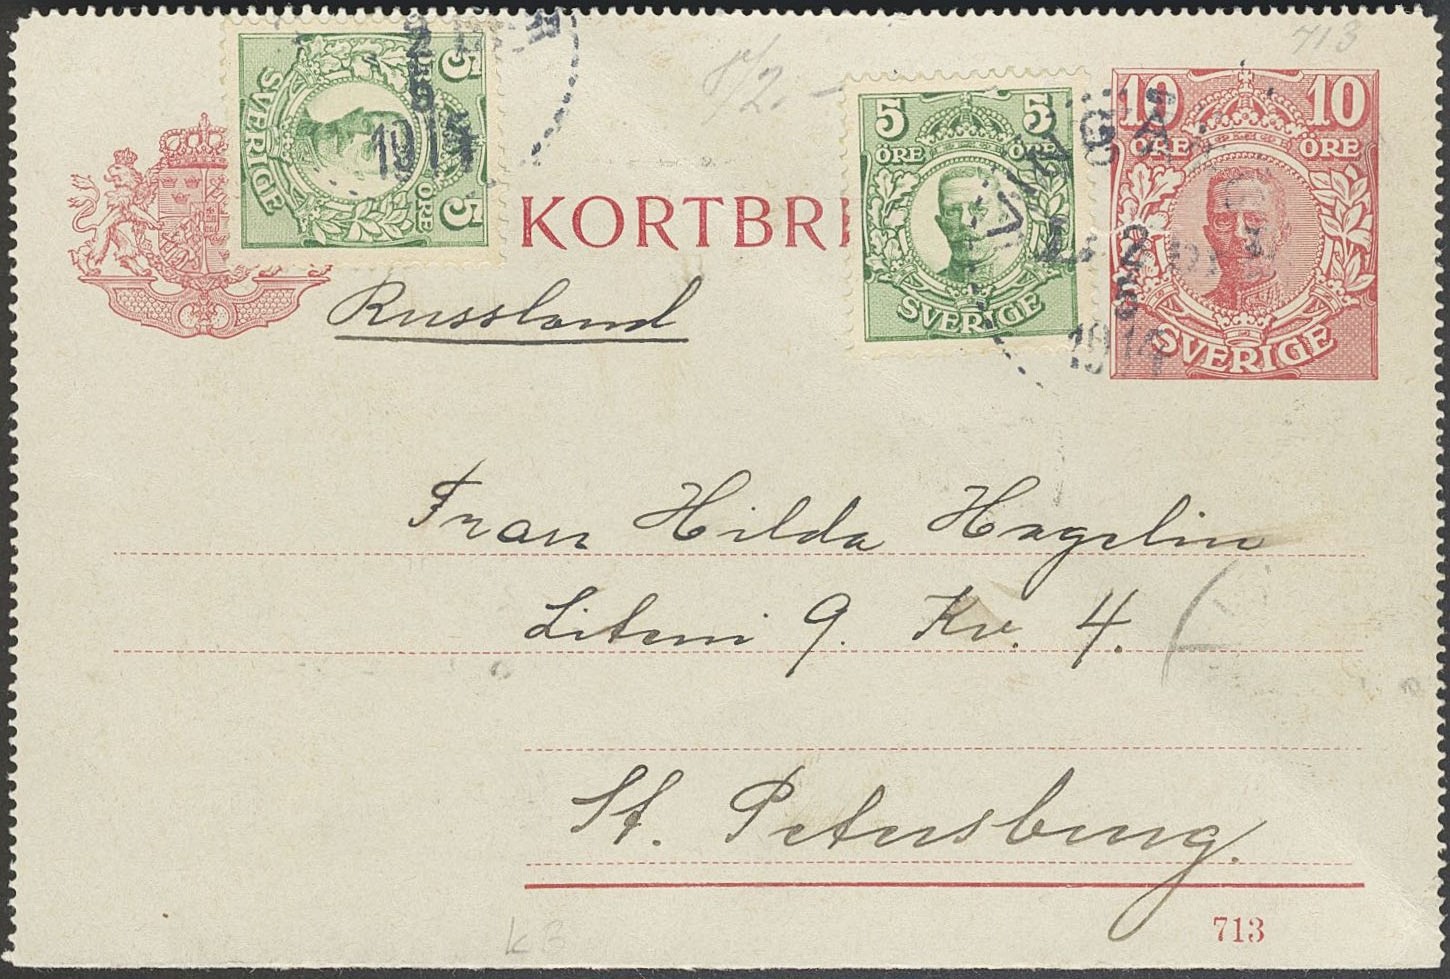 713
8/2.-
5 5
ÖRE
SVERIGE
1914
KORTBRE
5 5
ÖRE ÖRE
SVERIGE
10 10
ÖRE ÖRE
SVERIGE
1914
Russland
Frau Hilda Hagelin
Liteni 9. Kv. 4.
St. Petersburg.
713
KB